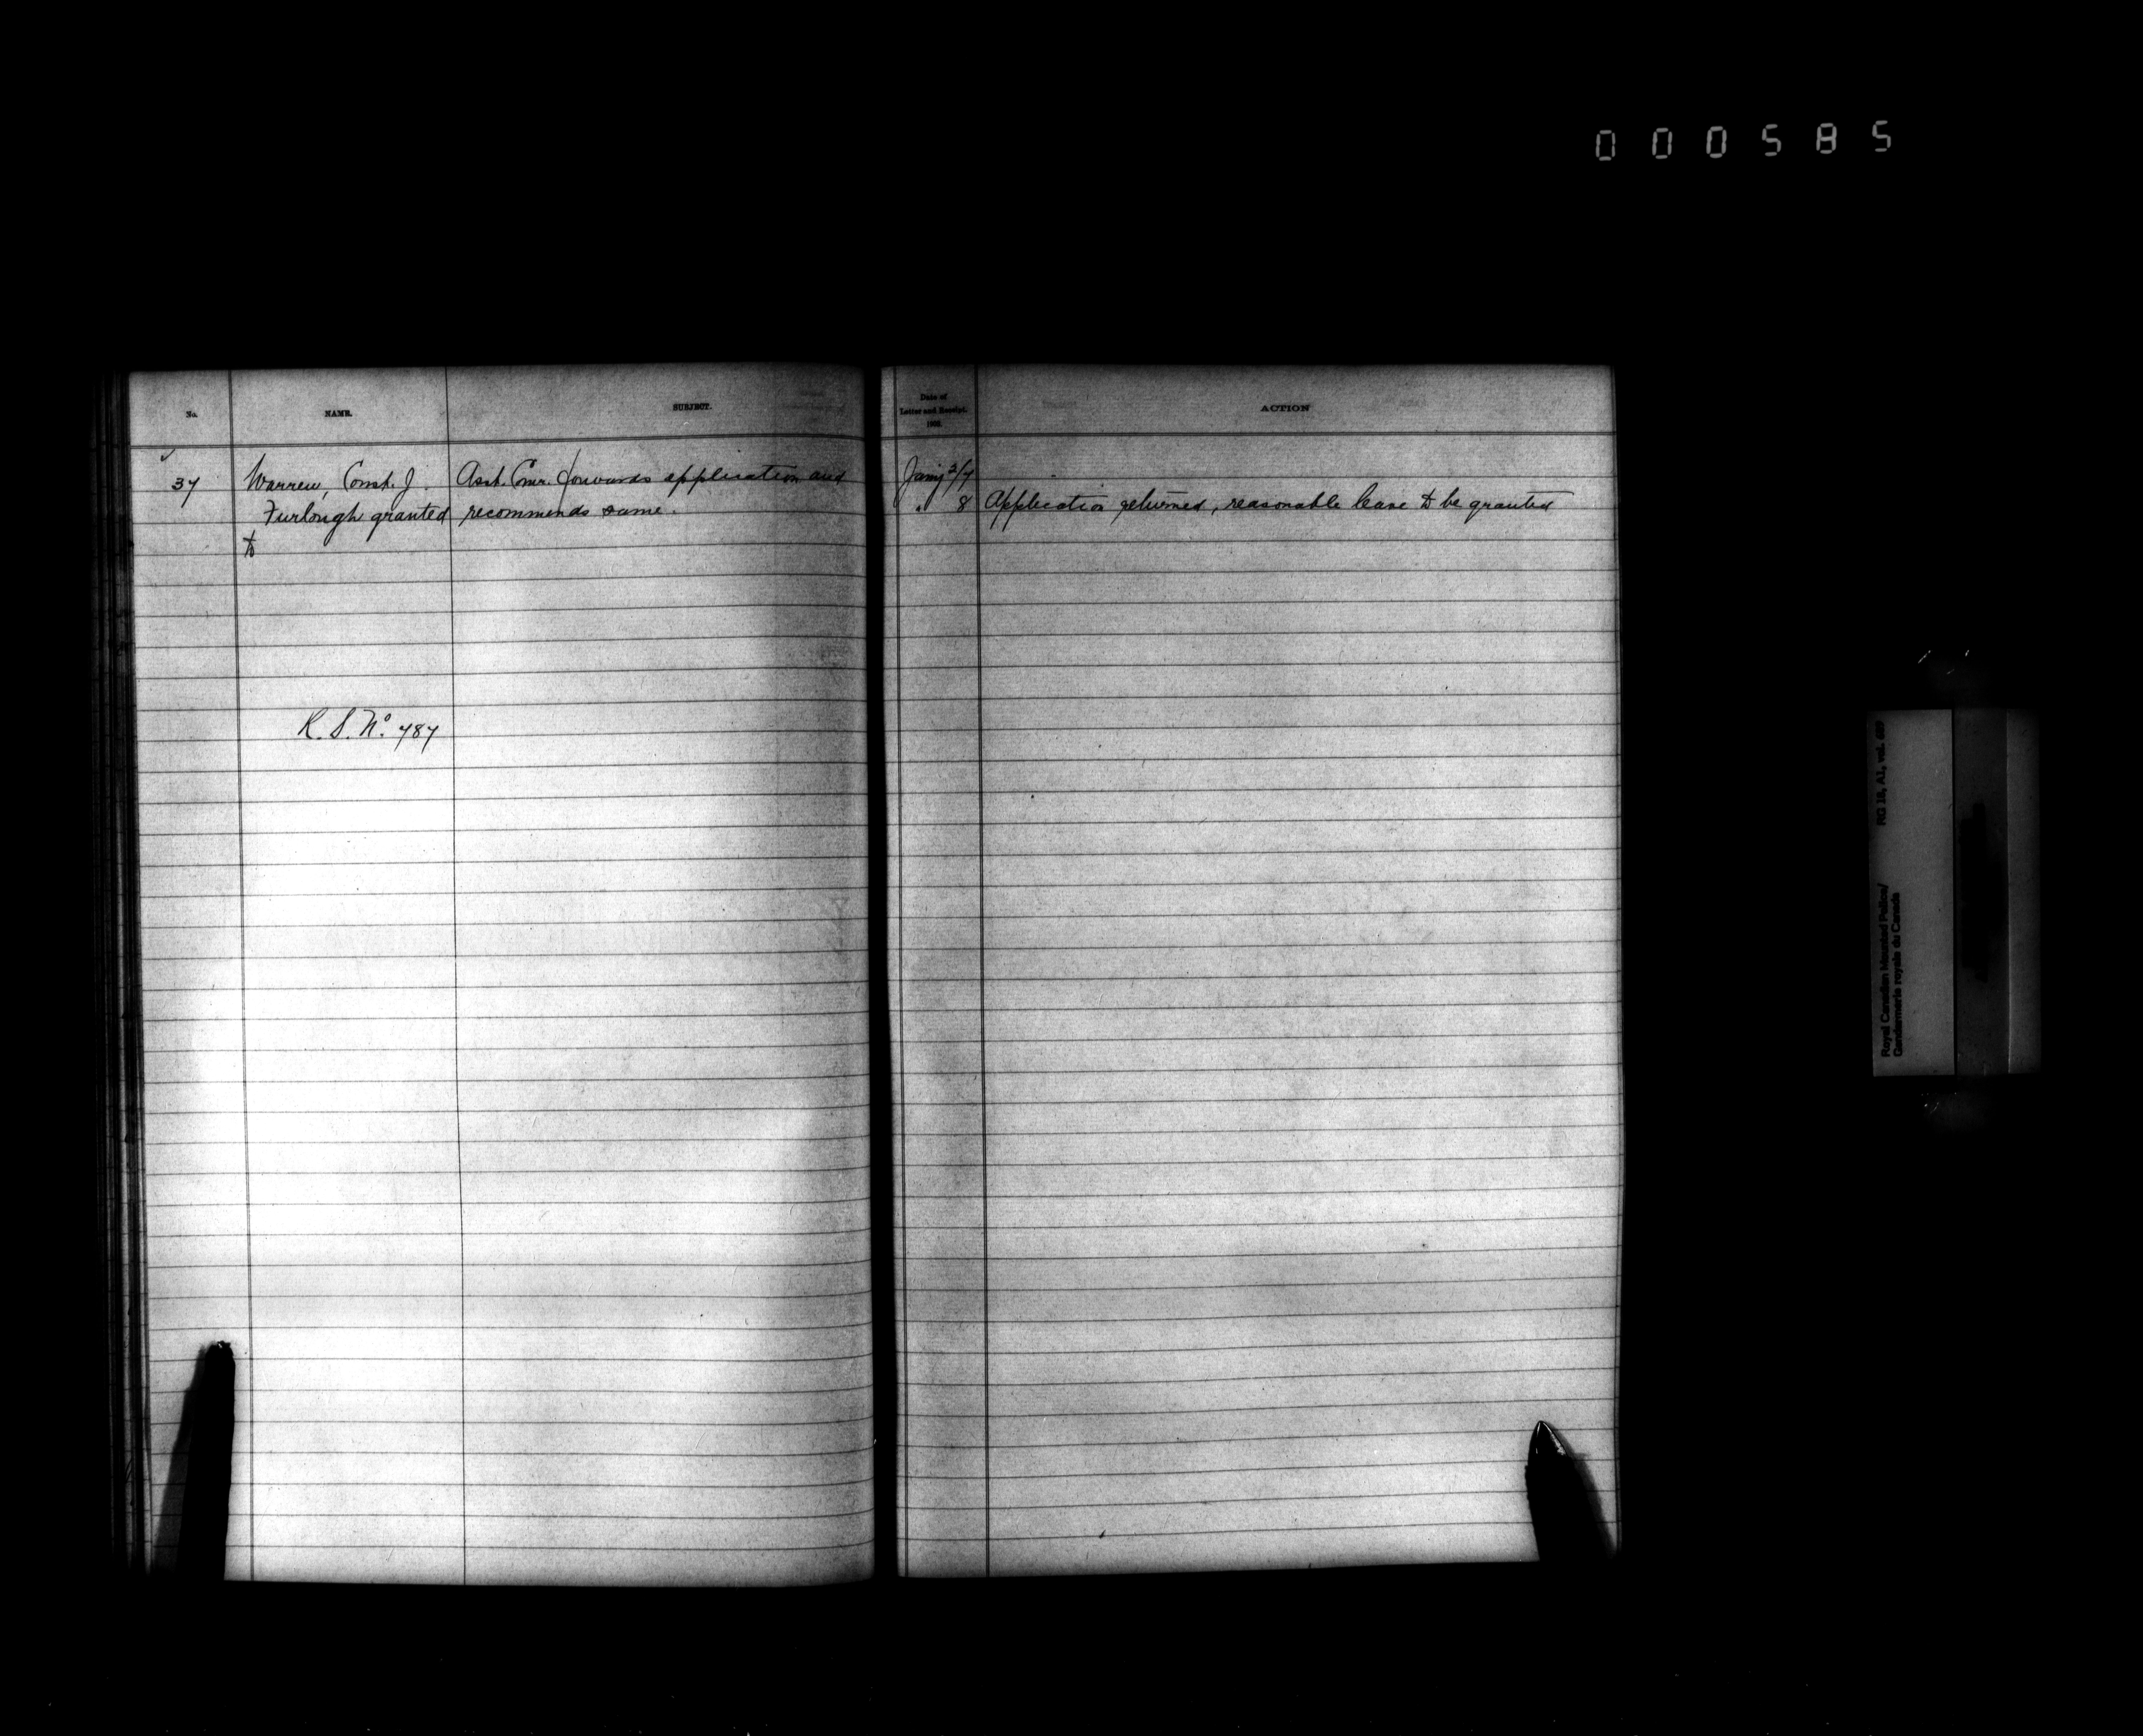 000585
No. NAME. SUBJECT.
37 Warren, Const. J. Asst. Comr. forwards application and
Furlough granted recommends same.
to
R. S. No. 787
Date of
Letter and Receipt.
ACTION
Jany 2/7
" 8 Application returned, reasonable leave to be granted
RG 18, A1, vol.
Royal Canadian Mounted Police/
Gendarmerie royale du Canada